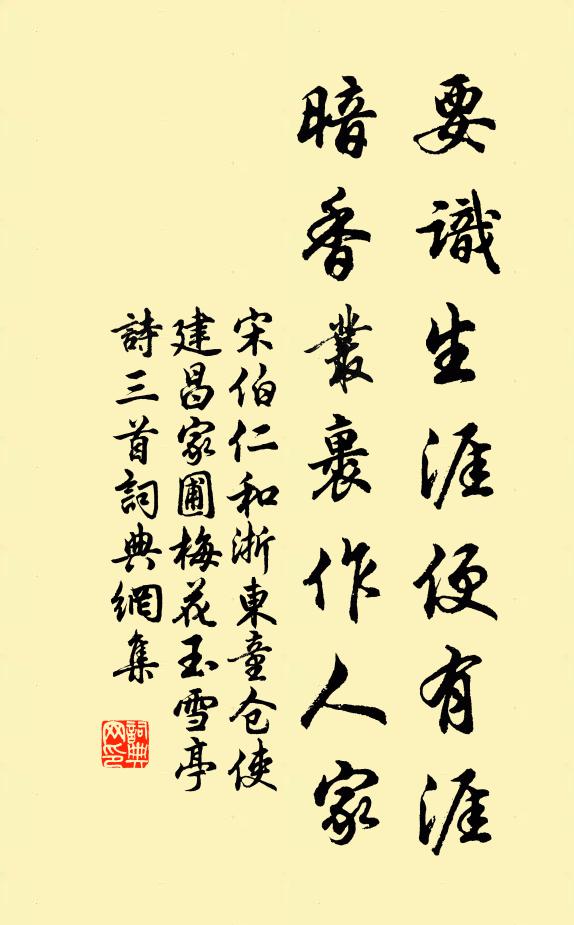 要識生涯便有涯
暗香叢裏作人家
宋伯仁和浙東童仓使
建昌家圃梅花玉雪亭
詩三首詞典網集
詞典
网印